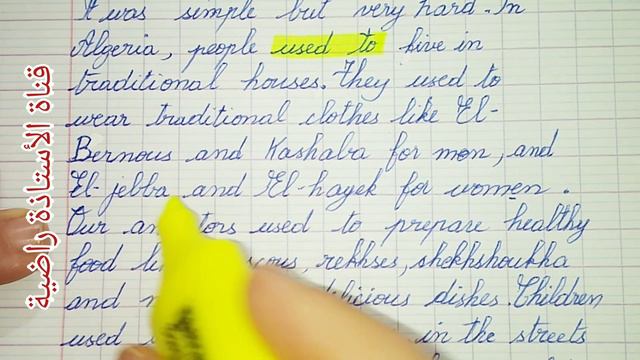 It was simple but very hard. In
Algeria, people used to live in
traditional houses. They used to
wear traditional clothes like El-
Bernous and Kashaba for men, and
El-jebba and El-hayek for women.
Our used to prepare healthy
food rekhses, shekhshoukha
and dishes. Children
used in the streets
قناة الأستاذة راضية